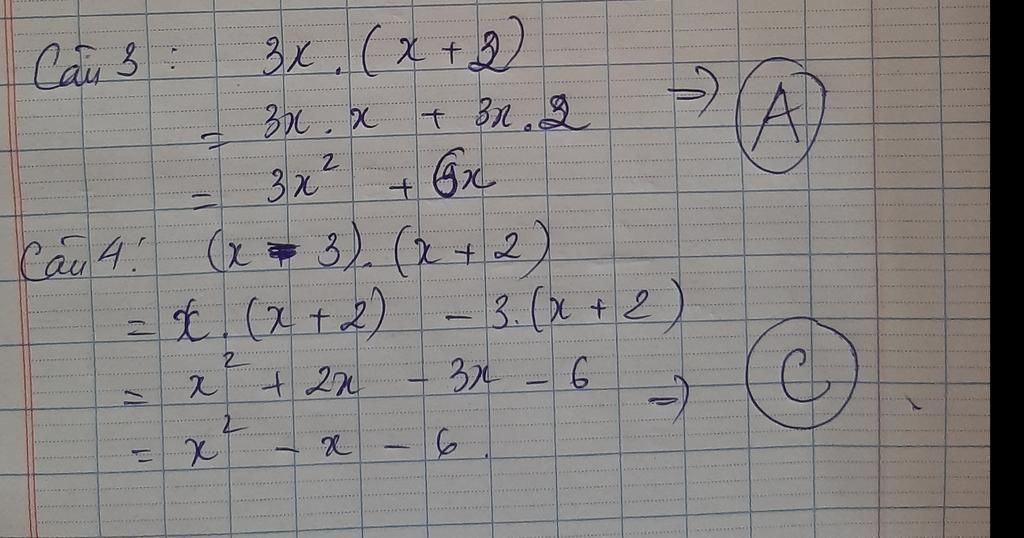 Câu 3 : 3x . (x + 2)
= 3x . x + 3x . 2 => A
= 3x² + 6x
Câu 4 : (x - 3) . (x + 2)
= x . (x + 2) - 3 . (x + 2)
= x² + 2x - 3x - 6 => C
= x² - x - 6 .